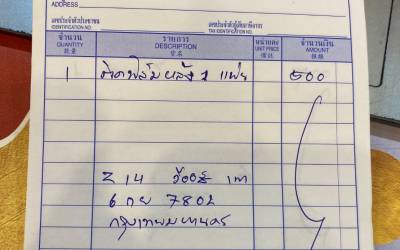 ADDRESS
เลขประจำตัวประชาชน เลขประจำตัวผู้เสียภาษีอากร
IDENTIFICATION NO. TAX IDENTIFICATION NO.
จำนวน รายการ หน่วยละ จำนวนเงิน
QUANTITY DESCRIPTION UNIT PRICE AMOUNT
1 ติดฟิล์มหลัง 1 แผ่น 500
2 1 4
6 กย 7802
กรุงเทพมหานคร